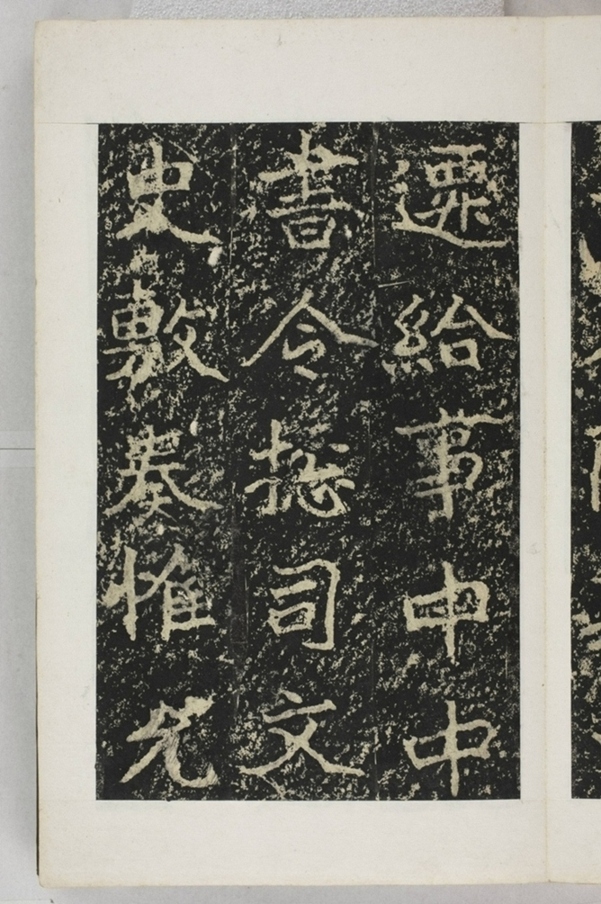 遷給事中中
書令揔司文
史敷奏惟允